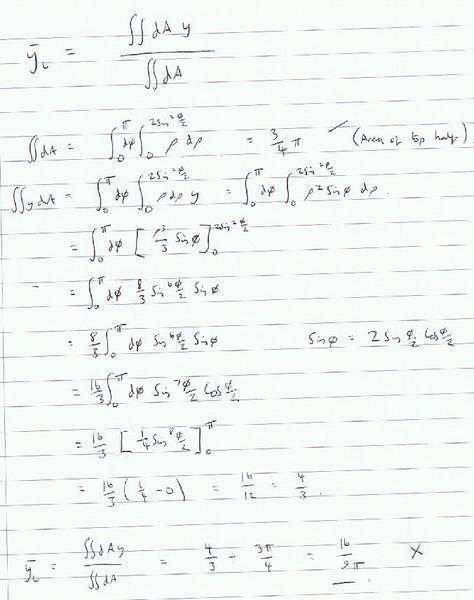 ȳ_c = ∬dA y / ∬dA
∬dA = ∫_0^π dφ ∫_0^{2sin²φ/2} ρ dρ = 3/4 π ✓ (Area of top half)
∬y dA = ∫_0^π dφ ∫_0^{2sin²φ/2} ρ dρ y = ∫_0^π dφ ∫_0^{2sin²φ/2} ρ² sinφ dρ.
= ∫_0^π dφ [ρ³/3 sinφ]_0^{2sin²φ/2}
= ∫_0^π dφ 8/3 sin⁶φ/2 sinφ
= 8/3 ∫_0^π dφ sin⁶φ/2 sinφ sinφ = 2 sin φ/2 cos φ/2
= 16/3 ∫_0^π dφ sin⁷φ/2 cosφ/2
= 16/3 [1/4 sin⁸φ/2]_0^π
= 16/3 (1/4 - 0) = 16/12 = 4/3.
ȳ_c = ∬dA y / ∬dA = 4/3 ÷ 3π/4 = 16/9π ×